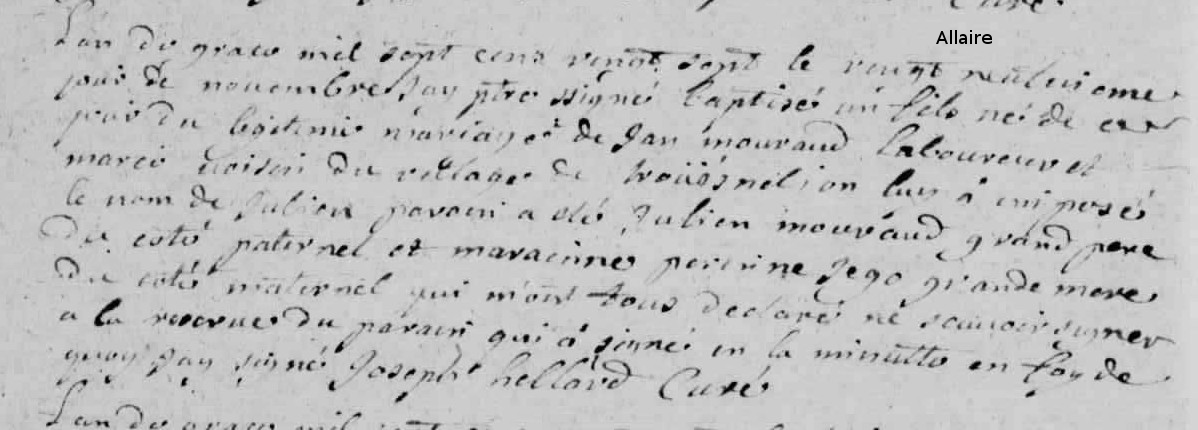 Curé.
Allaire
L'an de grace mil sept cens vingt sept le vingt neufvieme
jour de novembre Jay ptre signé baptizé un fils né de ce
jour du legitime mariage de Jan mouraud laboureur et
marie voisin du village de on luy à imposé
le nom de Julien parain a eté Julien mouraud grand pere
du coté paternel et maraine perrine Jego grande mere
du coté maternel qui m'ont tous declaré ne scavoir signer
a la reserve du parain qui à signé en la minutte en foy de
quoy Jay signé Joseph hellard Curé
L'an de grace mil sept